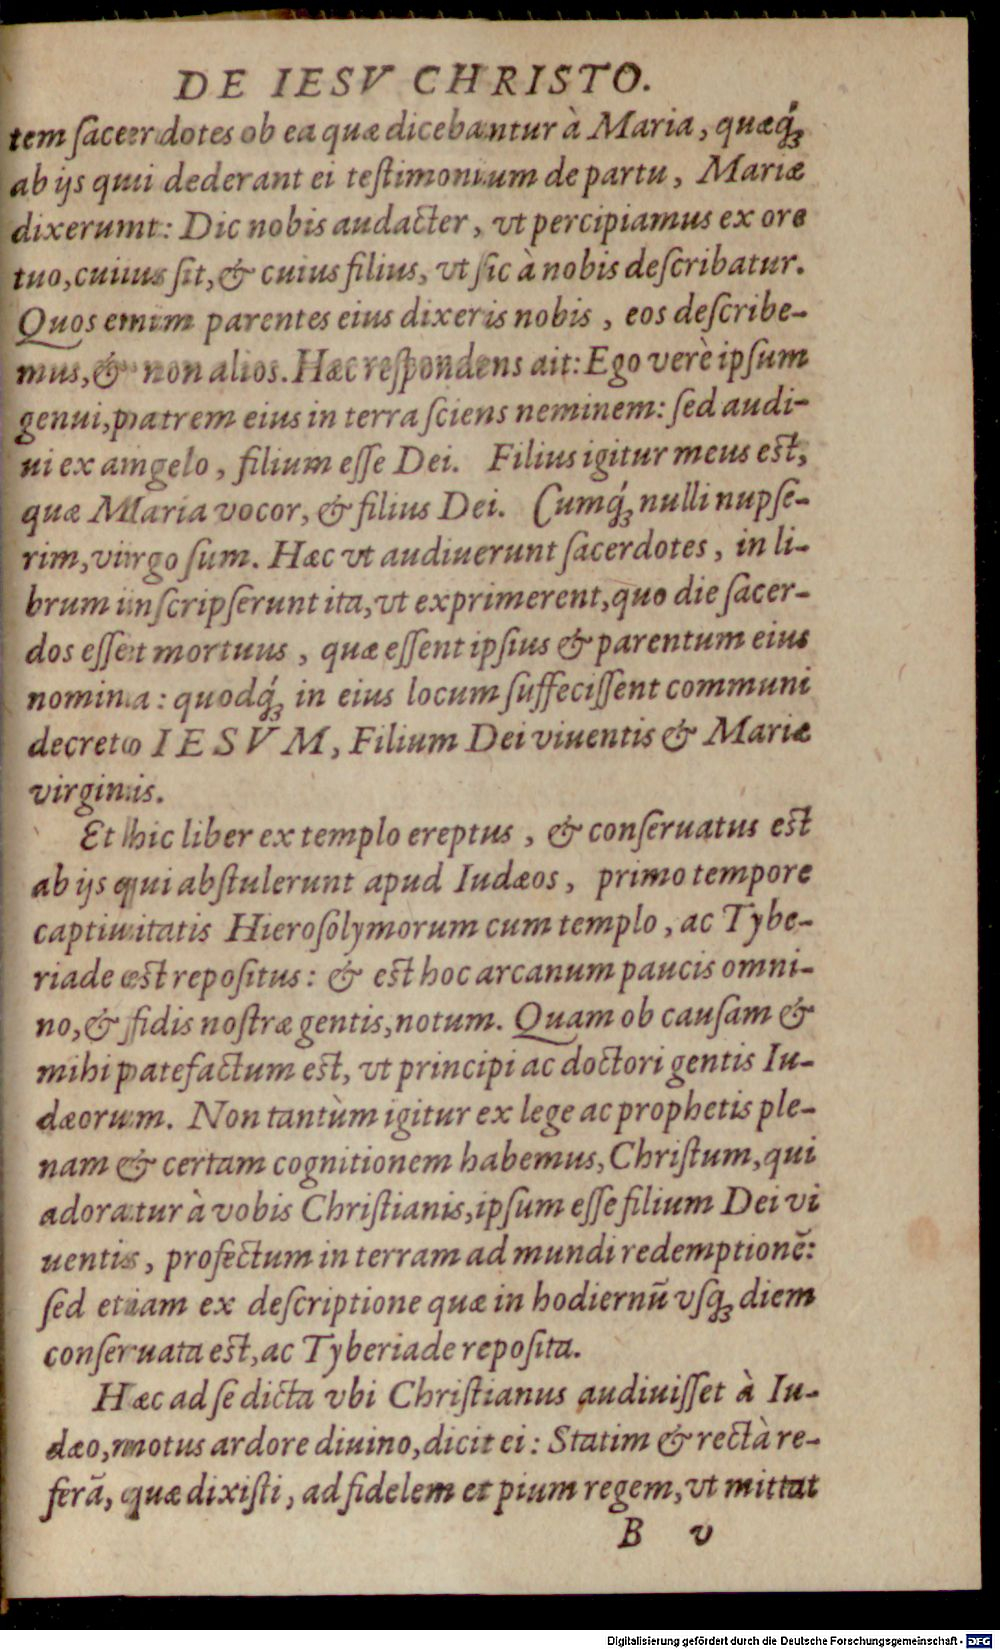 DE IESV CHRISTO.
tem ſacerdotes ob ea quæ dicebantur à Maria, quæq́ꝫ
ab ijs qui dederant ei teſtimonium de partu, Mariæ
dixerunt: Dic nobis audacter, vt percipiamus ex ore
tuo, cuius ſit, & cuius filius, vt ſic à nobis deſcribatur.
Quos enim parentes eius dixeris nobis, eos deſcribe-
mus, & non alios. Hæc reſpondens ait: Ego verè ipſum
genui, patrem eius in terra ſciens neminem: ſed audi-
ui ex angelo, filium eſſe Dei. Filius igitur meus eſt,
quæ Maria vocor, & filius Dei. Cumq́ꝫ nulli nupſe-
rim, virgo ſum. Hæc vt audiuerunt ſacerdotes, in li-
brum inſcripſerunt ita, vt exprimerent, quo die ſacer-
dos eſſet mortuus, quæ eſſent ipſius & parentum eius
nomina: quodq́ꝫ in eius locum ſuffeciſſent communi
decreto IESVM, Filium Dei viuentis & Mariæ
virginis.
Et hic liber ex templo ereptus, & conſeruatus eſt
ab ijs qui abſtulerunt apud Iudæos, primo tempore
captiuitatis Hieroſolymorum cum templo, ac Tybe-
riade eſt repoſitus: & eſt hoc arcanum paucis omni-
no, & fidis noſtræ gentis, notum. Quam ob cauſam &
mihi patefactum eſt, vt principi ac doctori gentis Iu-
dæorum. Non tantùm igitur ex lege ac prophetis ple-
nam & certam cognitionem habemus, Chriſtum, qui
adoratur à vobis Chriſtianis, ipſum eſſe filium Dei vi
uentis, profectum in terram ad mundi redemptionē:
ſed etiam ex deſcriptione quæ in hodiernū vſqꝫ diem
conſeruata eſt, ac Tyberiade repoſita.
Hæc ad ſe dicta vbi Chriſtianus audiuiſſet à Iu-
dæo, motus ardore diuino, dicit ei: Statim & rectà re-
ferā, quæ dixiſti, ad fidelem et pium regem, vt mittat
B v
Digitalisierung gefördert durch die Deutsche Forschungsgemeinschaft - DFG